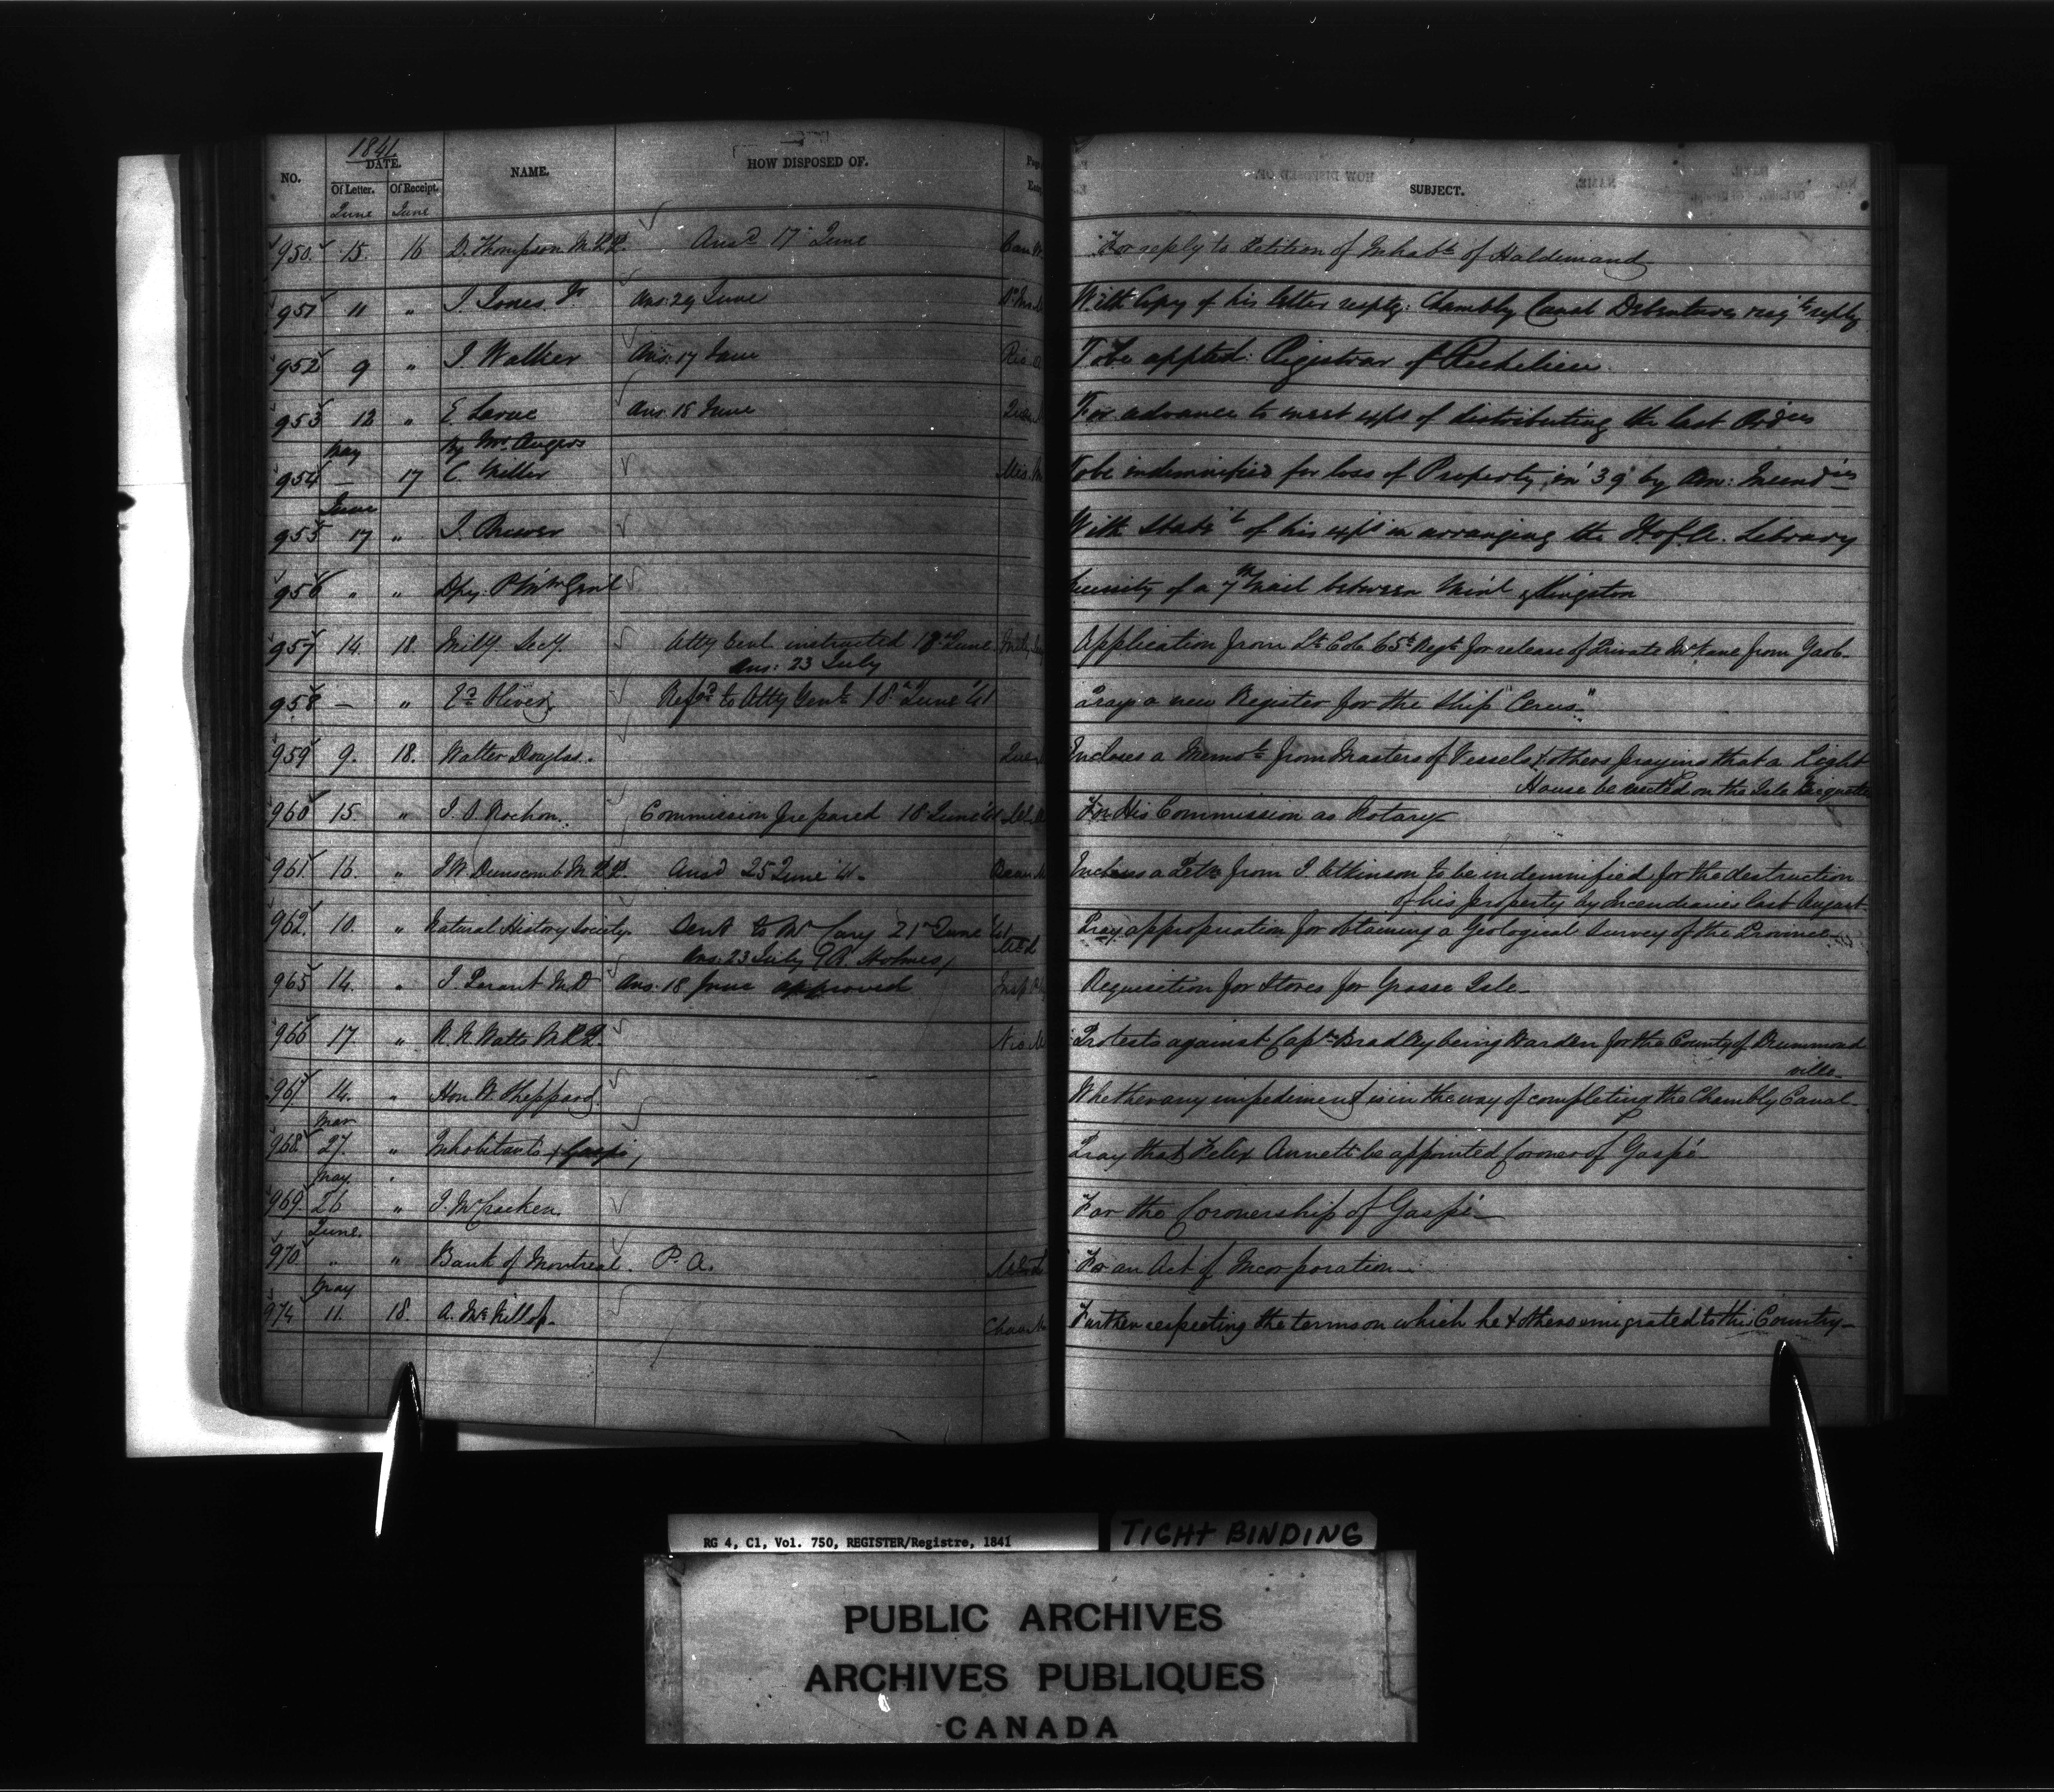 1841
NO. DATE. NAME. HOW DISPOSED OF.
Of Letter. Of Receipt.
June June
SUBJECT.
950 15. 16 D. Thompson M.P.P. Ansd 17 June For reply to Petition of Inhabts of Haldemand
951 11 " J. Jones Jr Ans: 29 June With Copy of his letter respg: Chambly Canal Debentures reqtg reply
952 9 " J. Walker Ans: 17 June To be appted: Registrar of Richelieu
953 12 " E. Larue Ans 18 June For advance to meet exps of distributing the last Ordces
May by Mr. Angers
954 — 17 C. Miller To be indemnified for loss of Property in '39 by Am: Incendies
June
955 17 " J. Brewer With Statet of his exps in arranging the H. of A. Library
956 " " Dpy. P. Mr Genl of a 7th Mail between Mont'l & Kingston
957 14. 18. Mily. Secy. Atty Genl instructed 18th June Application from Lt. Col. 65th Regt. for release of Private McKane from Gaol
Ans: 23 July
958 — " Oliver Refd to Atty Genl 18th June '41 Prays a new Register for the Ship "Ceres"
959 9. 18. Walter Douglas. Incloses a Memol from Masters of Vessels & others praying that a Light
House be erected on the Isle
960 15. " J. O. Rochon. Commission prepared 18 June '41 For His Commission as Notary
961 16. " J W. Dunscomb M.P.P. Ansd 25 June '41. Incloses a Letter from J. Atkinson to be indemnified for the destruction
of his property by Incendiaries last August
962. 10. " Natural History Society. Sent to Mr Cary 21st June '41 Pray appropriation for obtaining a Geological Survey of the Province
Ans: 23 July (A. Holmes)
965 14. " J. Parant M.D Ans: 18 June approved Requisition for Stores for Grosse Isle
966 17. " R. N. Watts M.P.P. Protests against Captn Bradley being Warden for the County of Drummond
ville
967 14. " Hon. W. Sheppard. Whether any impediment is in the way of completing the Chambly Canal
Mar
968. 27. " Inhabitants (Gaspé) Pray that Felix Annett be appointed Coroner of Gaspé
May
969. 26 " J. McCracken. For the Coronership of Gaspé
June.
970 " " Bank of Montreal. P. A. For an Act of Incorporation
May
974 11. 18. A. McKillop. Further respecting the terms on which he & others emigrated to this Country
RG 4, C1, Vol. 750, REGISTER/Registre, 1841
TIGHT BINDING
PUBLIC ARCHIVES
ARCHIVES PUBLIQUES
CANADA